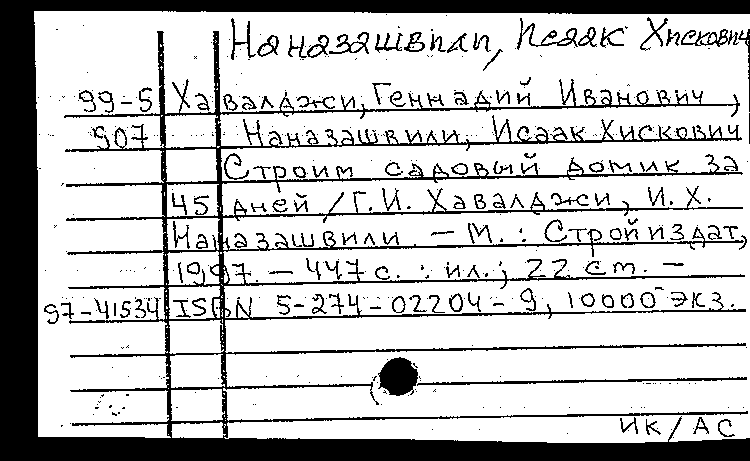 Наназашвили, Исаак Хискович
99-5 Хавалджи, Геннадий Иванович,
907 Наназашвили, Исаак Хискович
Строим садовый домик за
45 дней / Г.И. Хавалджи, И.Х.
Наназашвили. — М.: Стройиздат,
1997. — 447 с. : ил.; 22 см. —
97-41534 ISBN 5-274-02204-9, 10000 экз.
ИК/АС